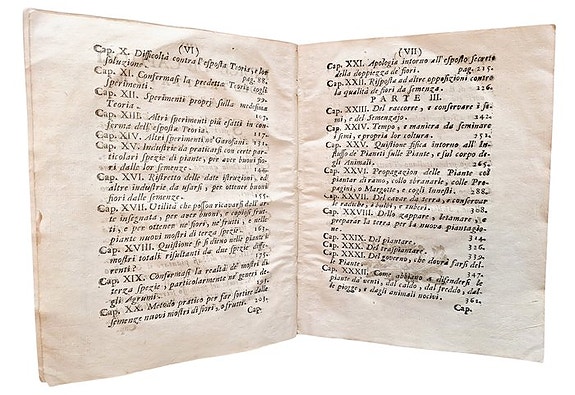 (VI)
Cap. X. Difficoltà contra l'esposta Teoria, e lor
soluzione. 88.
Cap. XI. Confermasi la predetta Teoria cogli
sperimenti. 99.
Cap. XII. Sperimenti proprj sulla medesima
Teoria. 107.
Cap. XIII. Altri sperimenti più esatti in con-
ferma dell'esposta Teoria. 117.
Cap. XIV. Altri sperimenti ne' Garofani. 131.
Cap. XV. Industrie da praticarsi con certe par-
ticolari spezie di piante, per aver buoni fio-
ri dalle lor semenze. 144.
Cap. XVI. Ristretto delle date istruzioni, ed
altre industrie da usarsi, per ottener buoni
fiori dalle semenze. 155.
Cap. XVII. Utilità che posson ricavarsi dall'arte
insegnata, per aver buoni, e copiosi frut-
ti, e per ottener ne' fiori, e ne' frutti, nelle
piante nuovi mostri di terza spezie. 163.
Cap. XVIII. Quistione se si dieno nelle piante i
mostri totali risultanti da due spezie diffe-
renti? 175.
Cap. XIX. Confermasi la realtà de' mostri di
terza spezie, particolarmente ne' generi de-
gli Agrumi. 193.
Cap. XX. Metodo pratico per far sortire dalle
semenze nuovi mostri di fiori, o frutti. 203.
Cap.
(VII)
Cap. XXI. Apologia intorno all'esposto secreto
della doppiezza de' fiori. pag. 215.
Cap. XXII. Risposta ad altre opposizioni contro
la qualità de' fiori da semenza. 226.
PARTE III.
Cap. XXIII. Del raccorre, e conservare i se-
mi, e del Semenzajo. 242.
Cap. XXIV. Tempo, e maniera da seminare
i semi, e propria lor coltura. 251.
Cap. XXV. Quistione fisica intorno all'In-
flusso de' Pianeti sulle Piante, e sul corpo de-
gli Animali. 265.
Cap. XXVI. Propagazion delle Piante col
piantar di ramo, collo sbranarle, colle Pro-
pagini, o Margotte, e cogli Innesti. 288.
Cap. XXVII. Del cavar da terra, e conservar
le radiche, i bulbi, e tuberi. 308.
Cap. XXVIII. Dello zappare, letamare, e
preparar la terra per la nuova piantagio-
ne. 314.
Cap. XXIX. Del piantare. 326.
Cap. XXX. Del traspiantare. 331.
Cap. XXXI. Del governo, che dovrà farsi del-
le Piante. 347.
Cap. XXXII. Come abbiano a difendersi le
piante da' venti, dal caldo, dal freddo, dal-
le piogge, e dagli animali nocivi. 362.
Cap.